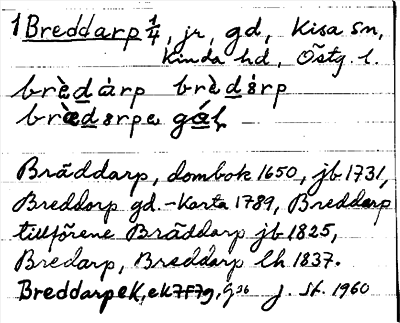 1 Breddarp 1/4, jr, gd, Kisa sn,
Kinda hd, Östg. l.
brèdàrp brèdərp
Bräddarp, dombok 1650, jb 1731,
Breddorp gd.-Karta 1789, Breddarp
tillförene Bräddarp jb 1825,
Bredarp, Breddarp lh 1837.
Breddarp eK, ek 7F7g, j. sk. 1960